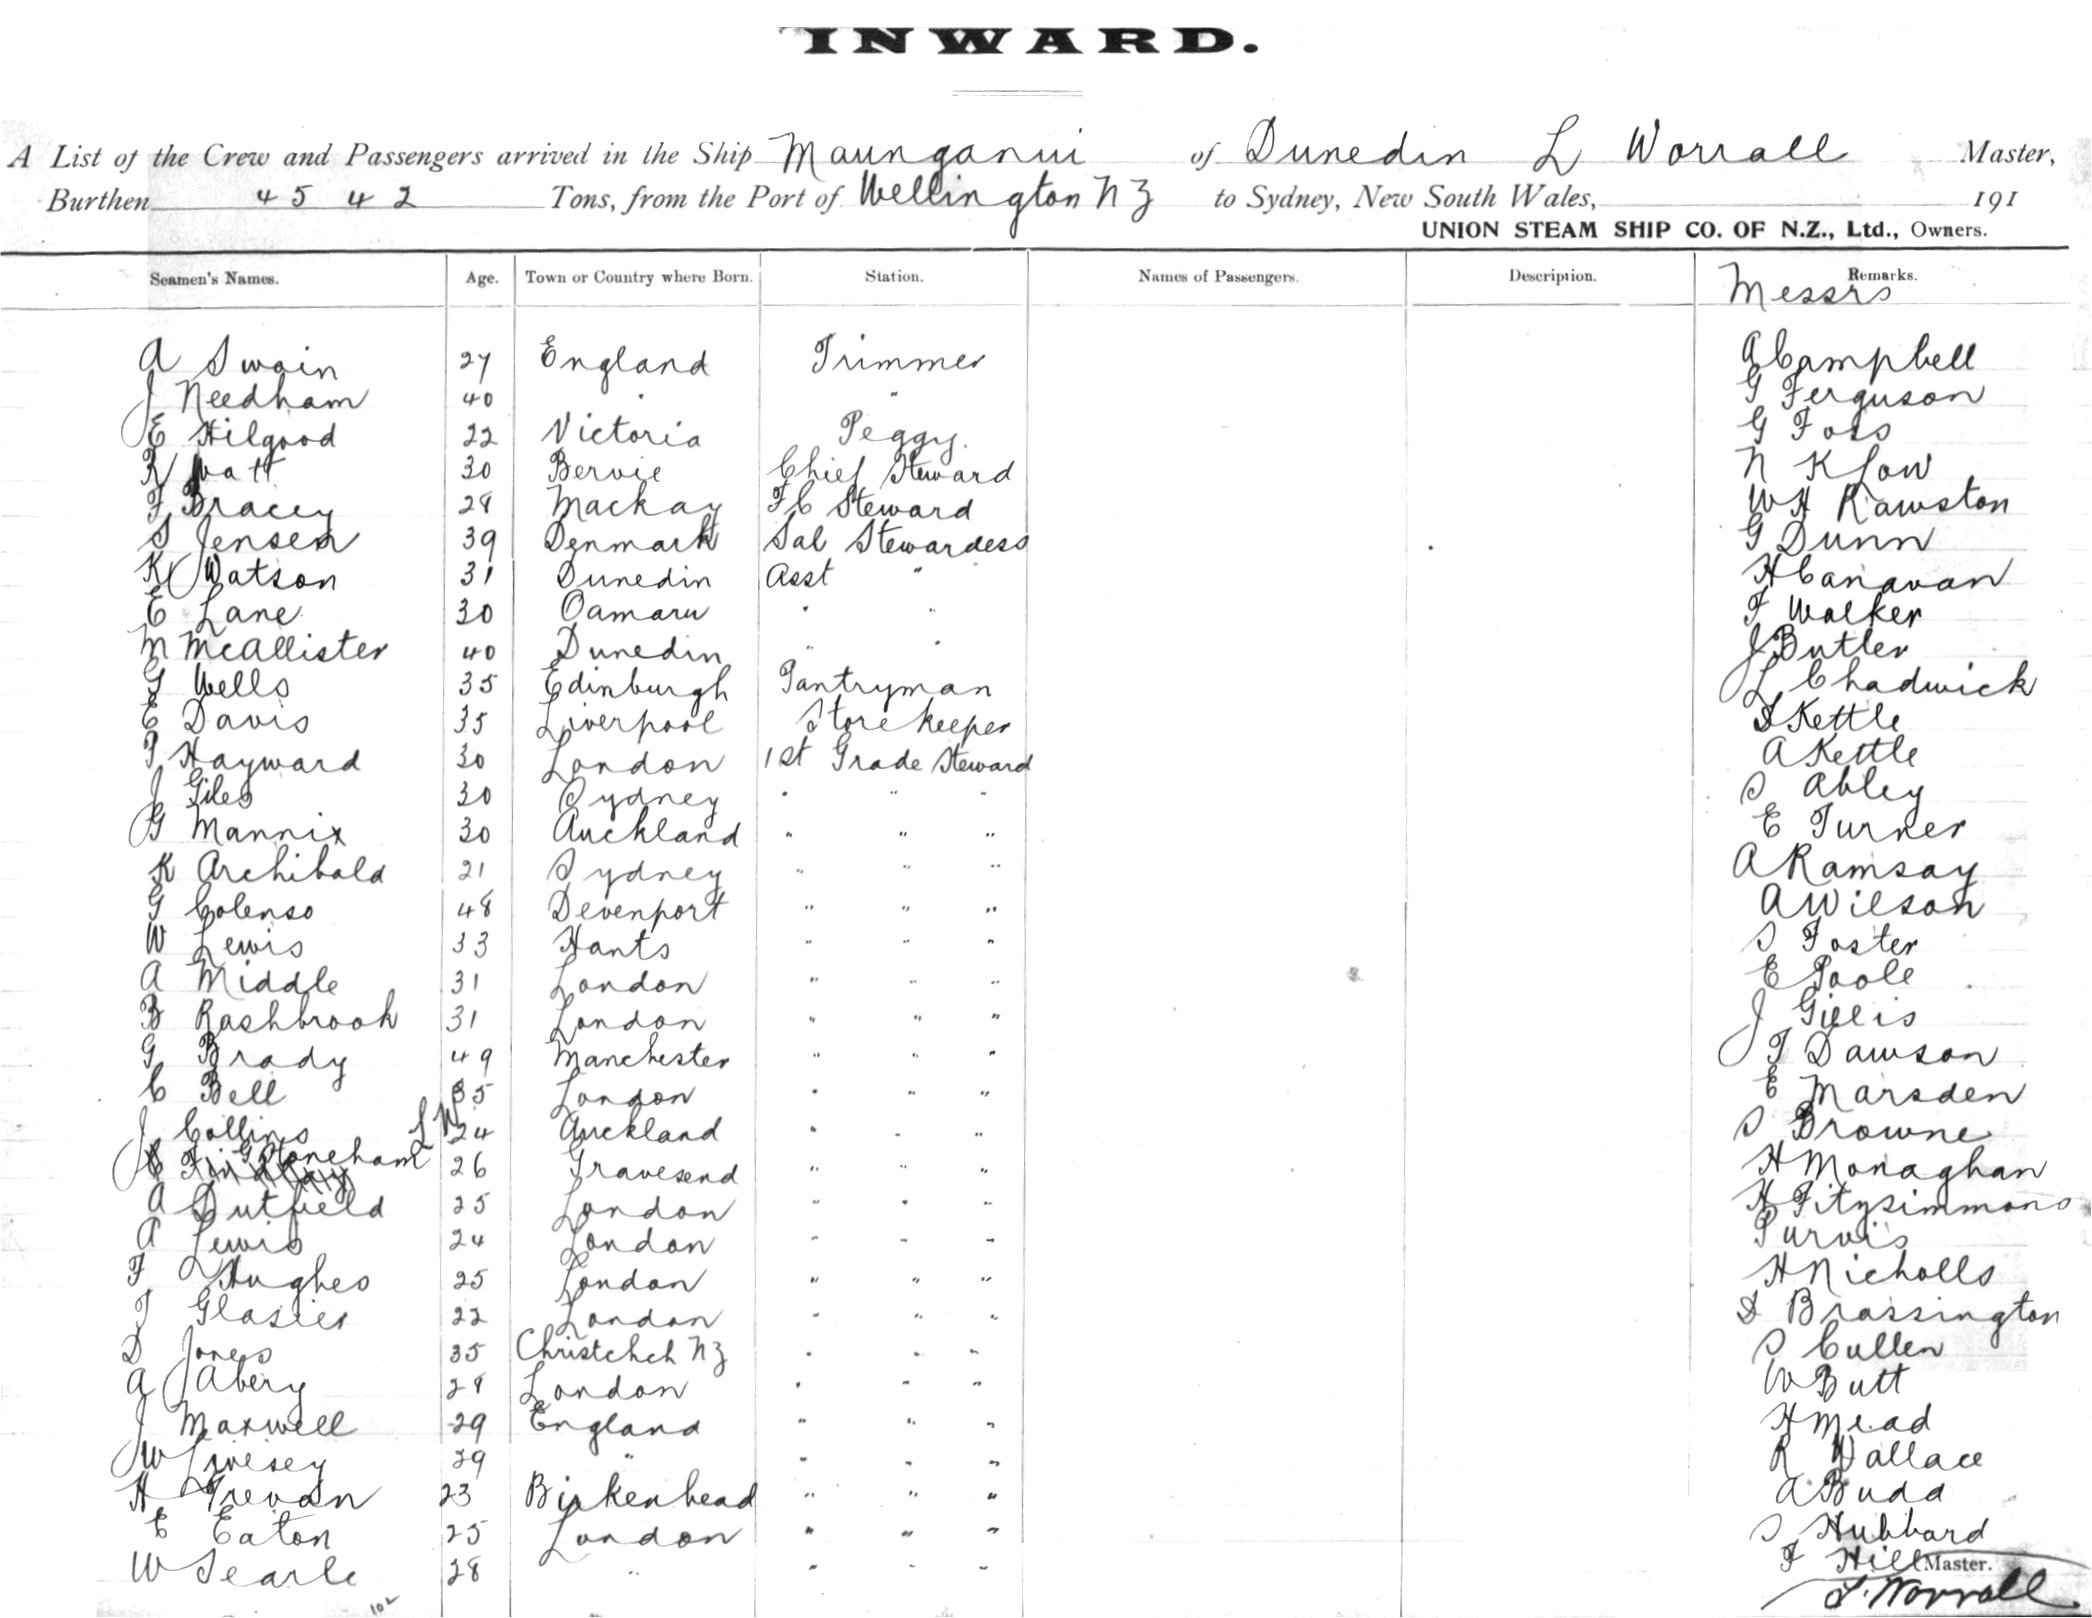 INWARD.
A List of the Crew and Passengers arrived in the Ship Maunganui of Dunedin L Worrall Master,
Burthen 4542 Tons, from the Port of Wellington NZ to Sydney, New South Wales, 191
UNION STEAM SHIP CO. OF N.Z., Ltd., Owners.
Seamen's Names. Age. Town or Country where Born. Station. Names of Passengers. Description. Remarks.
Messrs
A Swain 27 England Trimmer A Campbell
J Needham 40 " " G Ferguson
E Hilgood 22 Victoria Peggy. G Foss
R Watt 30 Bervie Chief Steward N K Low
F Bracey 28 Mackay FC Steward WH Rawston
S Jensen 39 Denmark Sal Stewardess G Dunn
K Watson 31 Dunedin Asst " H Canavan
E Lane 30 Oamaru " " F Walker
M McAllister 40 Dunedin " " J Butler
G Wells 35 Edinburgh Pantryman L Chadwick
E Davis 35 Liverpool Storekeeper Kettle
P Hayward 30 London 1st Grade Steward A Kettle
J Giles 30 Sydney " " " S Abley
G Mannix 30 Auckland " " " E Turner
K Archibald 21 Sydney " " " A Ramsay
G Colenso 48 Devenport " " " A Wilson
W Lewis 33 Hants " " " S Foster
A Middle 31 London " " " E Poole
B Rashbrook 31 London " " " J Gillis
G Brady 49 Manchester " " " T Dawson
C Bell 35 London " " " E Marsden
J Collins 24 Auckland " " " S Browne
G Stoneham LW 26 Gravesend " " " H Monaghan
A Dutfield 25 London " " " H Fitzsimmons
A Lewis 24 London " " " Purvis
F Hughes 25 London " " " H Nicholls
T Glasier 22 London " " " Brassington
D Jones 35 Christchch NZ " " " S Cullen
A Abery 28 London " " " W Butt
J Maxwell 29 England " " " H Mead
W Livesey 29 " " " " R Wallace
H Trevan 23 Birkenhead " " " A Budd
E Eaton 25 London " " " S Hubbard
W Searle 28 " " " " F Hill
Master.
L. Worrall
102